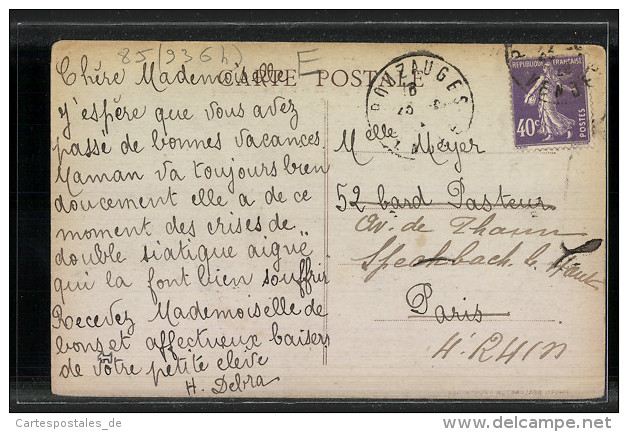 85 (936 h) E
Chère Mademoiselle
CARTE POSTALE
J'éspère que vous avez
passé de bonnes vacances
Maman va toujours bien
doucement elle a de ce
moment des crises de
double siatique aiguë
qui la font bien souffrir
Recevez Mademoiselle de
bons et affectueux baisers
de votre petite elève
H. Debra
POUZAUGES
RÉPUBLIQUE FRANÇAISE
40c
POSTES
Melle Meyer
52 bard Pasteur
Av. de Thann
Spechbach le Haut
Paris
Ht RHIN
Cartespostales_de
www.delcampe.net